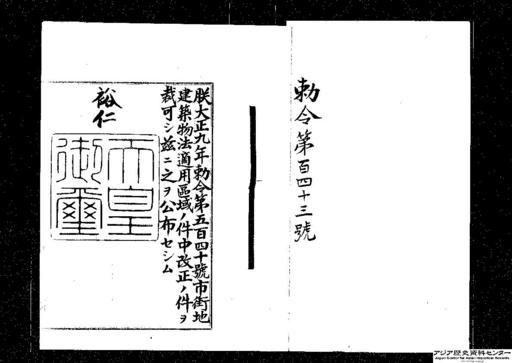 勅令第百四十三號
朕大正九年勅令第五百四十號市街地
建築物法適用區域ノ件中改正ノ件ヲ
裁可シ茲ニ之ヲ公布セシム
裕仁
天皇
御璽
アジア歴史資料センター
Japan Center for Asian Historical Records